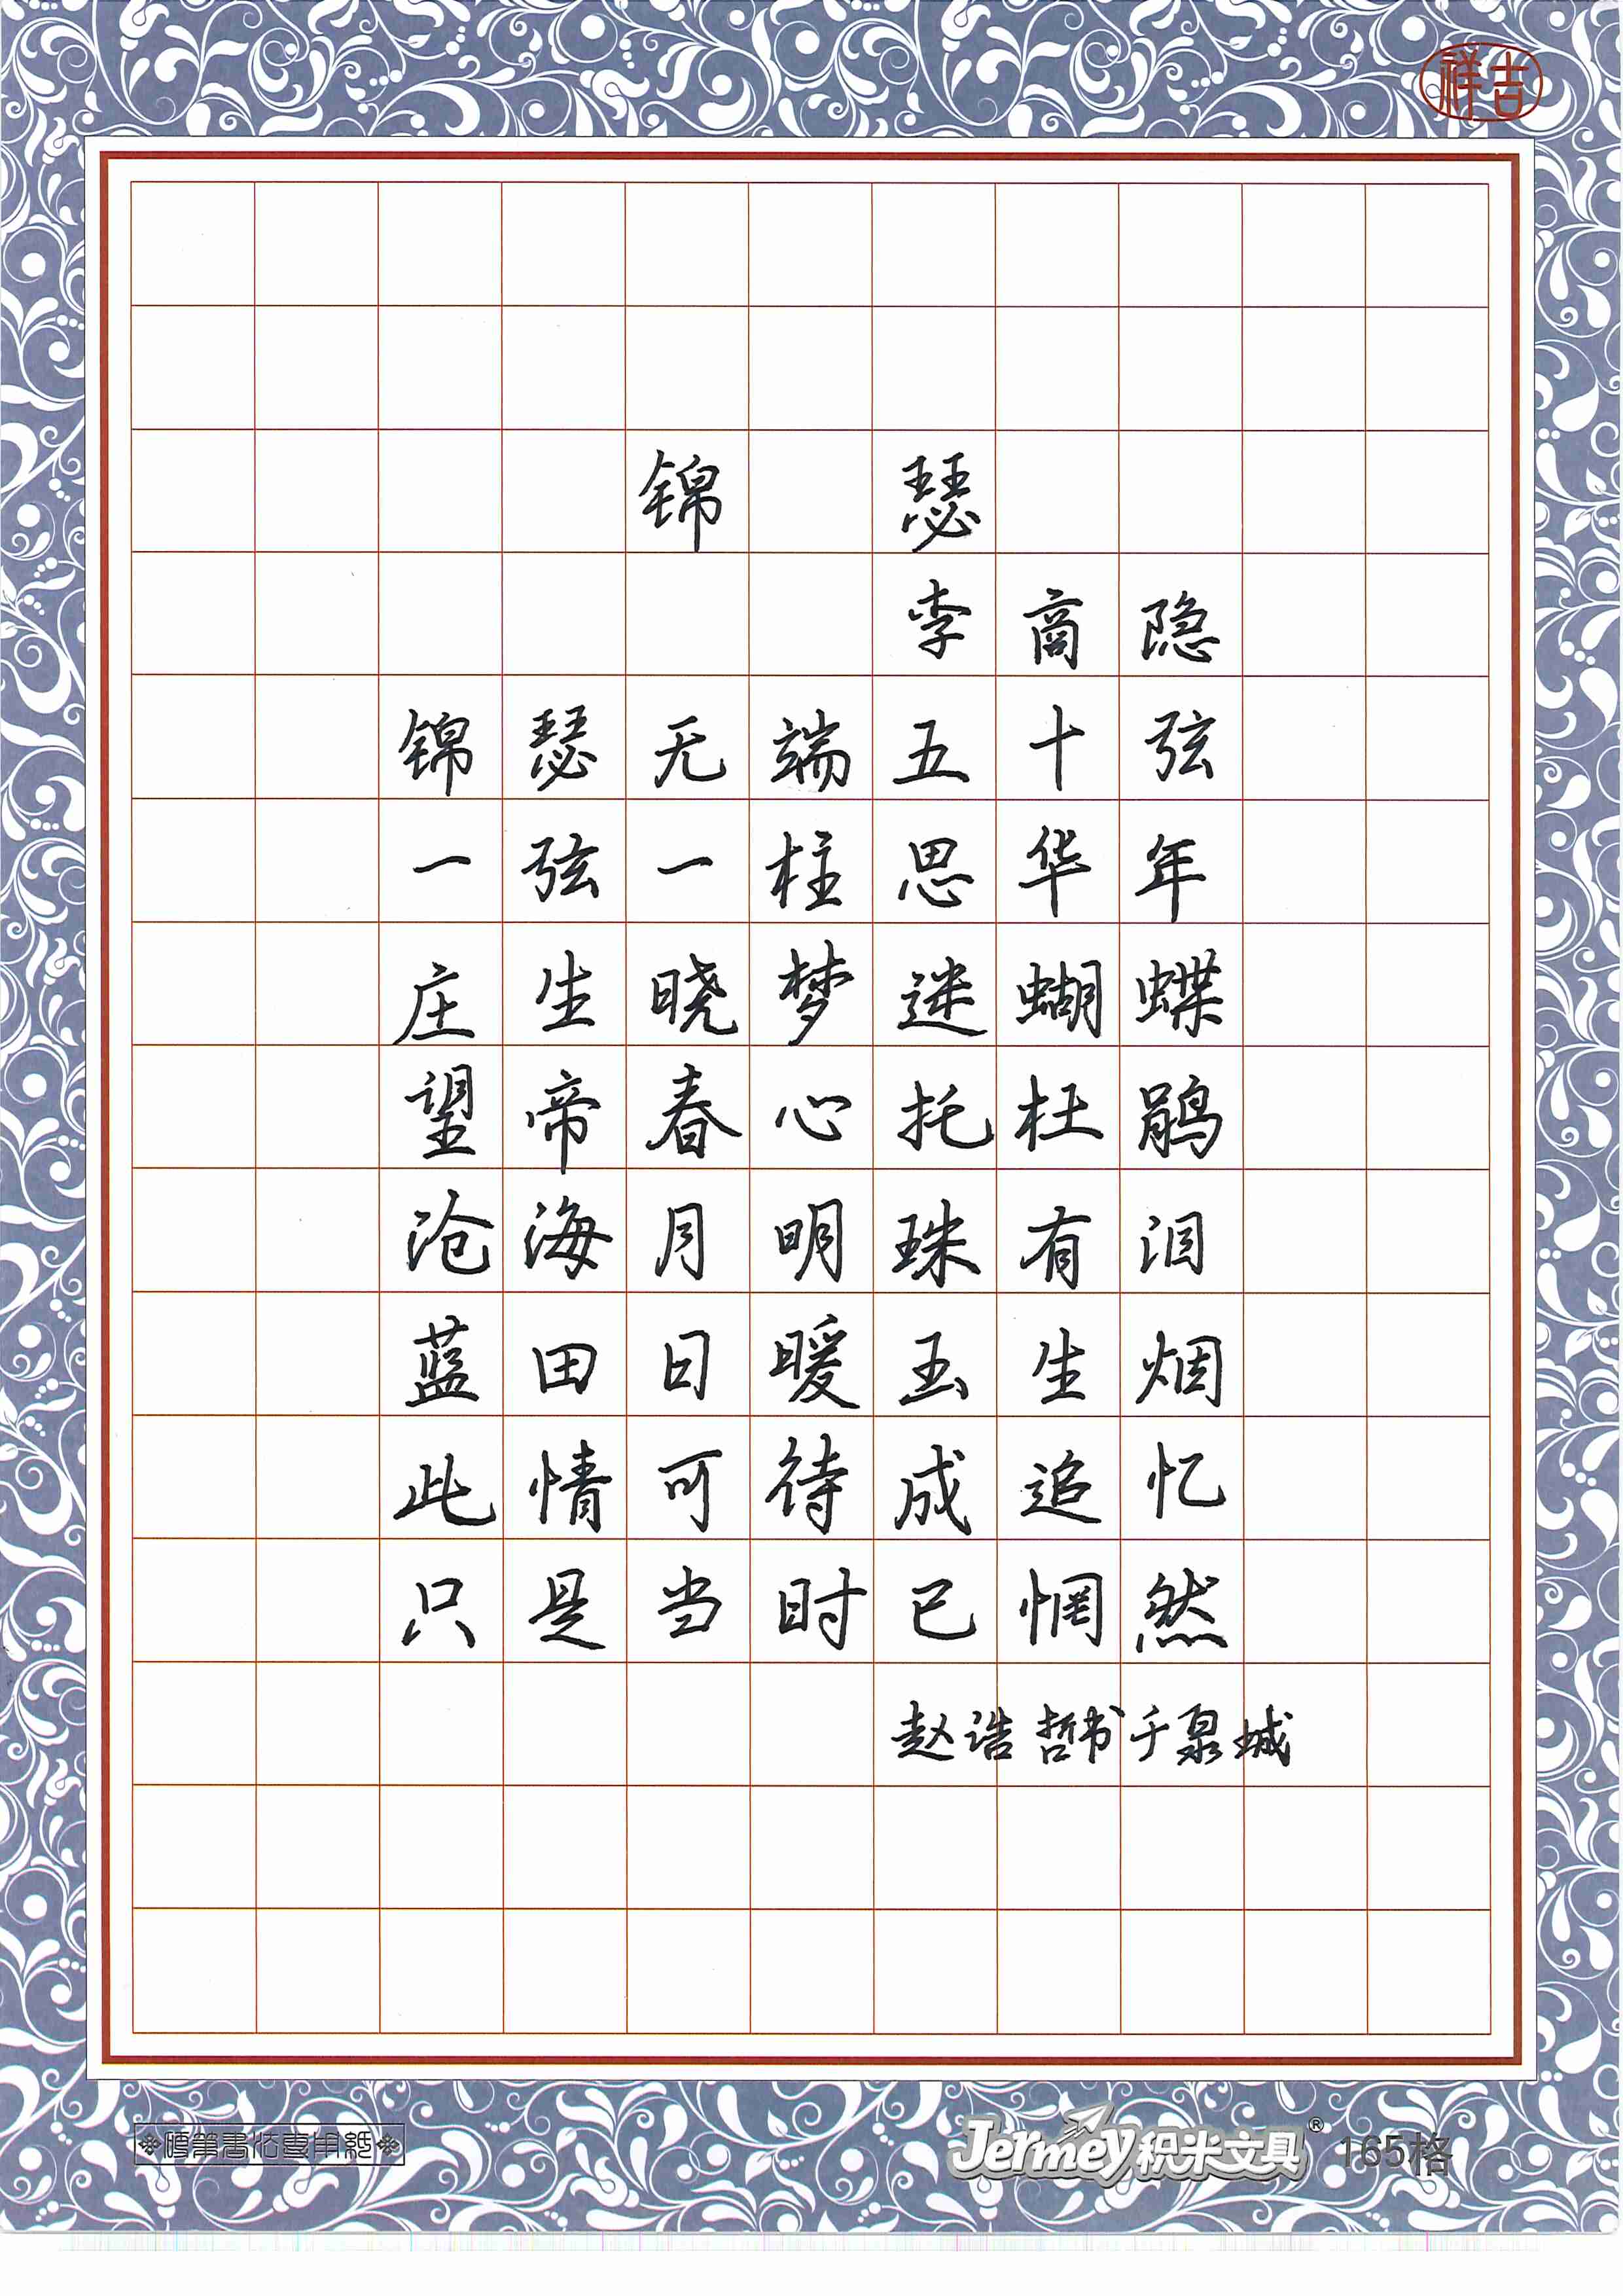 祥吉
锦瑟
李商隐
锦瑟无端五十弦
一弦一柱思华年
庄生晓梦迷蝴蝶
望帝春心托杜鹃
沧海月明珠有泪
蓝田日暖玉生烟
此情可待成追忆
只是当时已惘然
赵浩哲书于泉城
硬筆書法專用紙
Jermey积米文具® 165格